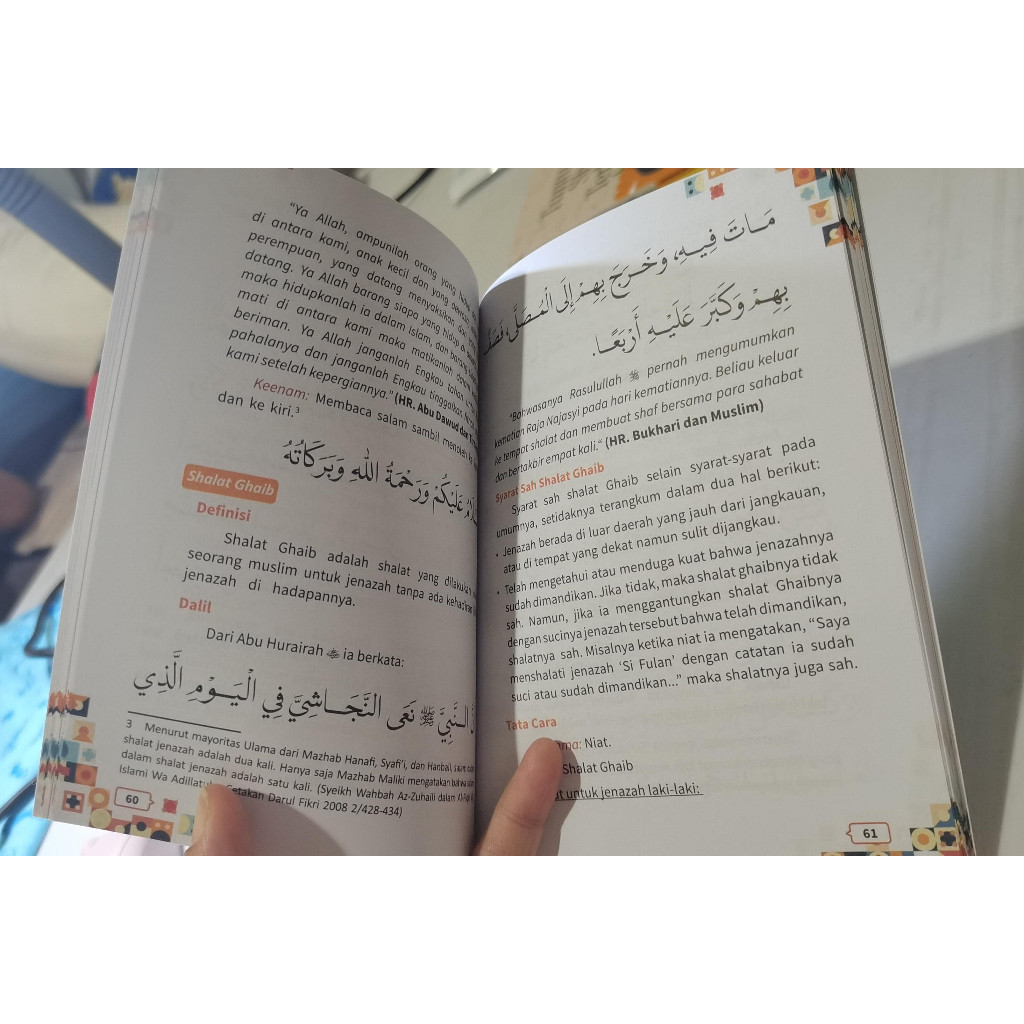 "Ya Allah, ampunilah orang yang
di antara kami, anak kecil dan yang
perempuan, yang datang menyaksikan dan
datang. Ya Allah barang siapa yang hidup di
maka hidupkanlah ia dalam Islam, dan barang
mati di antara kami maka matikanlah
beriman. Ya Allah janganlah Engkau tahan
pahalanya dan janganlah Engkau tinggalkan
kami setelah kepergiannya." (HR. Abu Dawud dan
Keenam: Membaca salam sambil menoleh ke
dan ke kiri.³
عَلَيْكُمْ وَرَحْمَةُ اللهِ وَبَرَكَاتُهُ
Shalat Ghaib
Definisi
Shalat Ghaib adalah shalat yang dilakukan
seorang muslim untuk jenazah tanpa ada
jenazah di hadapannya.
Dalil
Dari Abu Hurairah ia berkata:
النَّبِيَّ ﷺ نَعَى النَّجَاشِيَّ فِي الْيَوْمِ الَّذِي
3 Menurut mayoritas Ulama dari Mazhab Hanafi, Syafi'i, dan Hanbali,
shalat jenazah adalah dua kali. Hanya saja Mazhab Maliki mengatakan bahwa
dalam shalat jenazah adalah satu kali. (Syeikh Wahbah Az-Zuhaili dalam
Islami Wa Cetakan Darul Fikri 2008 2/428-434)
60
مَاتَ فِيهِ، وَخَرَجَ بِهِمْ إِلَى الْمُصَلَّى،
بِهِمْ وَكَبَّرَ عَلَيْهِ أَرْبَعًا.
"Bahwasanya Rasulullah ﷺ pernah mengumumkan
kematian Raja Najasyi pada hari kematiannya. Beliau keluar
ke tempat shalat dan membuat shaf bersama para sahabat
dan bertakbir empat kali." (HR. Bukhari dan Muslim)
Syarat Sah Shalat Ghaib
Syarat sah shalat Ghaib selain syarat-syarat pada
umumnya, setidaknya terangkum dalam dua hal berikut:
• Jenazah berada di luar daerah yang jauh dari jangkauan,
atau di tempat yang dekat namun sulit dijangkau.
• Telah mengetahui atau menduga kuat bahwa jenazahnya
sudah dimandikan. Jika tidak, maka shalat ghaibnya tidak
sah. Namun, jika ia menggantungkan shalat Ghaibnya
dengan sucinya jenazah tersebut bahwa telah dimandikan,
shalatnya sah. Misalnya ketika niat ia mengatakan, "Saya
menshalati jenazah 'Si Fulan' dengan catatan ia sudah
suci atau sudah dimandikan..." maka shalatnya juga sah.
Tata Cara
Niat.
Shalat Ghaib
untuk jenazah laki-laki:
61